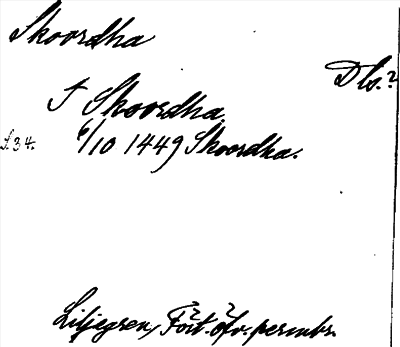 Skoordha
Dls.?
I Skoordha
f. 34. 6/10 1449 Skoordha.
Liljegren, Fört. öfv. permbr.